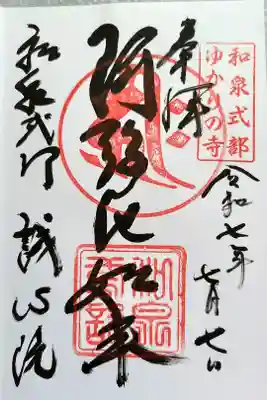 和泉式部
ゆかりの寺
奉拝
令和七年
七月七日
阿弥陀如来
和泉式部
誠心院